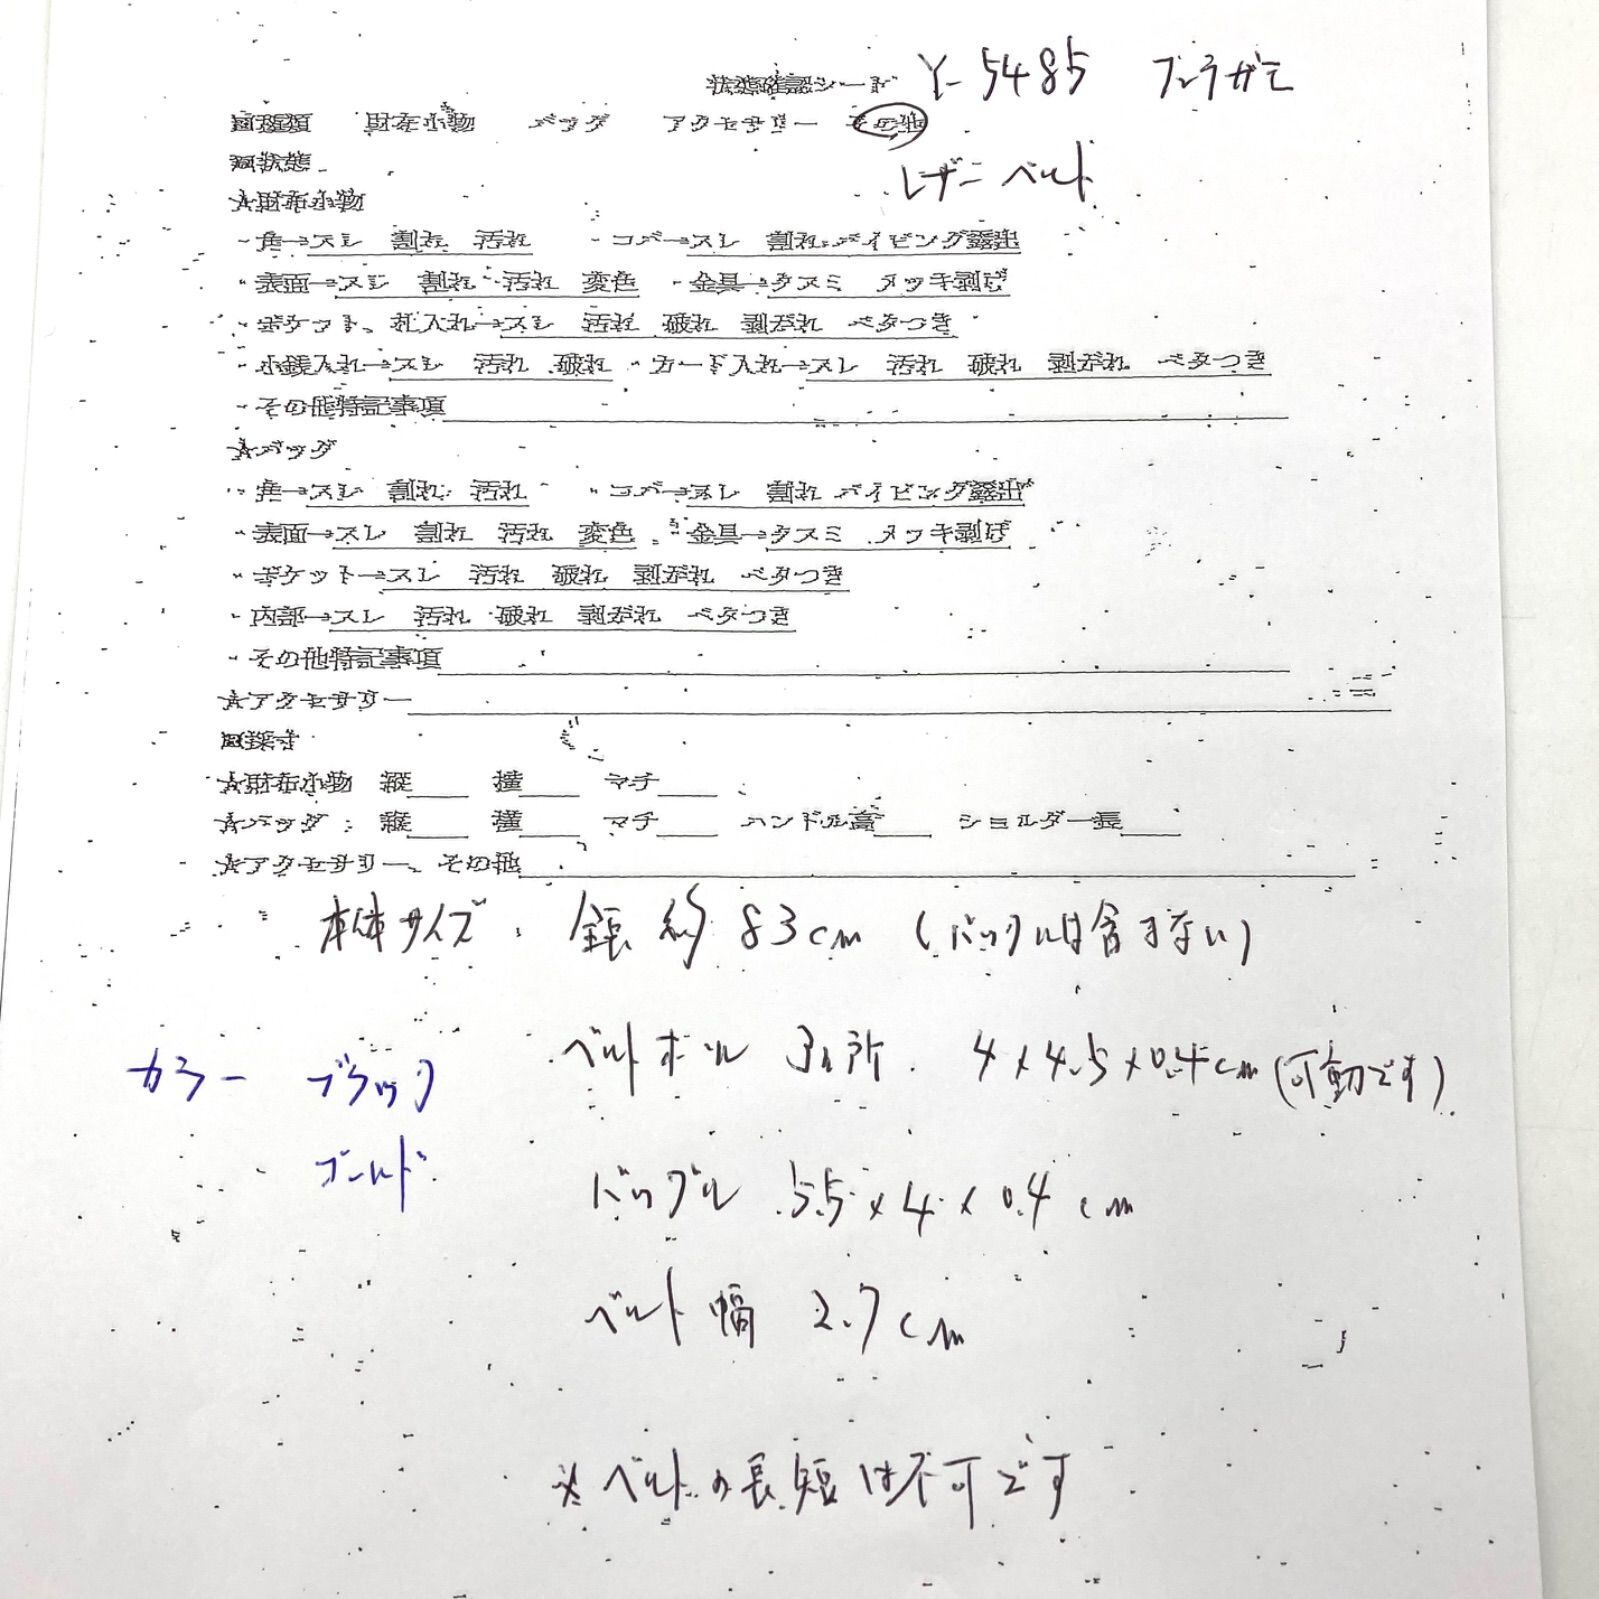 状態確認シート Y-5485 フェラガモ
■種類 財布小物 バッグ アクセサリー その他
レザーベルト
■状態
★財布小物
・角→スレ 割れ 汚れ ・コバ→スレ 割れ パイピング露出
・表面→スレ 割れ 汚れ 変色 ・金具→クスミ メッキ剥げ
・ポケット、札入れ→スレ 汚れ 破れ 剥がれ ベタつき
・小銭入れ→スレ 汚れ 破れ ・カード入れ→スレ 汚れ 破れ 剥がれ ベタつき
・その他特記事項
★バッグ
・角→スレ 割れ 汚れ ・コバ→スレ 割れ パイピング露出
・表面→スレ 割れ 汚れ 変色 ・金具→クスミ メッキ剥げ
・ポケット→スレ 汚れ 破れ 剥がれ ベタつき
・内部→スレ 汚れ 破れ 剥がれ ベタつき
・その他特記事項
★アクセサリー
■採寸
★財布小物 縦 横 マチ
★バッグ 縦 横 マチ ハンドル高 ショルダー長
★アクセサリー、その他
本体サイズ 全長 約 83cm (バックルは含まない)
ベルトホール 3ヵ所 4×4.5×0.4cm(可動です)
カラー ブラック
ゴールド
バックル 5.5×4×0.4cm
ベルト幅 2.7cm
※ベルトの長短は不可です